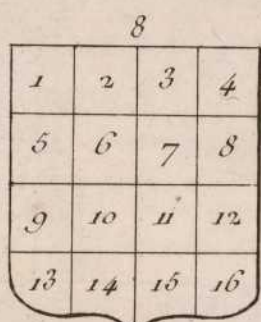 8
1 2 3 4
5 6 7 8
9 10 11 12
13 14 15 16